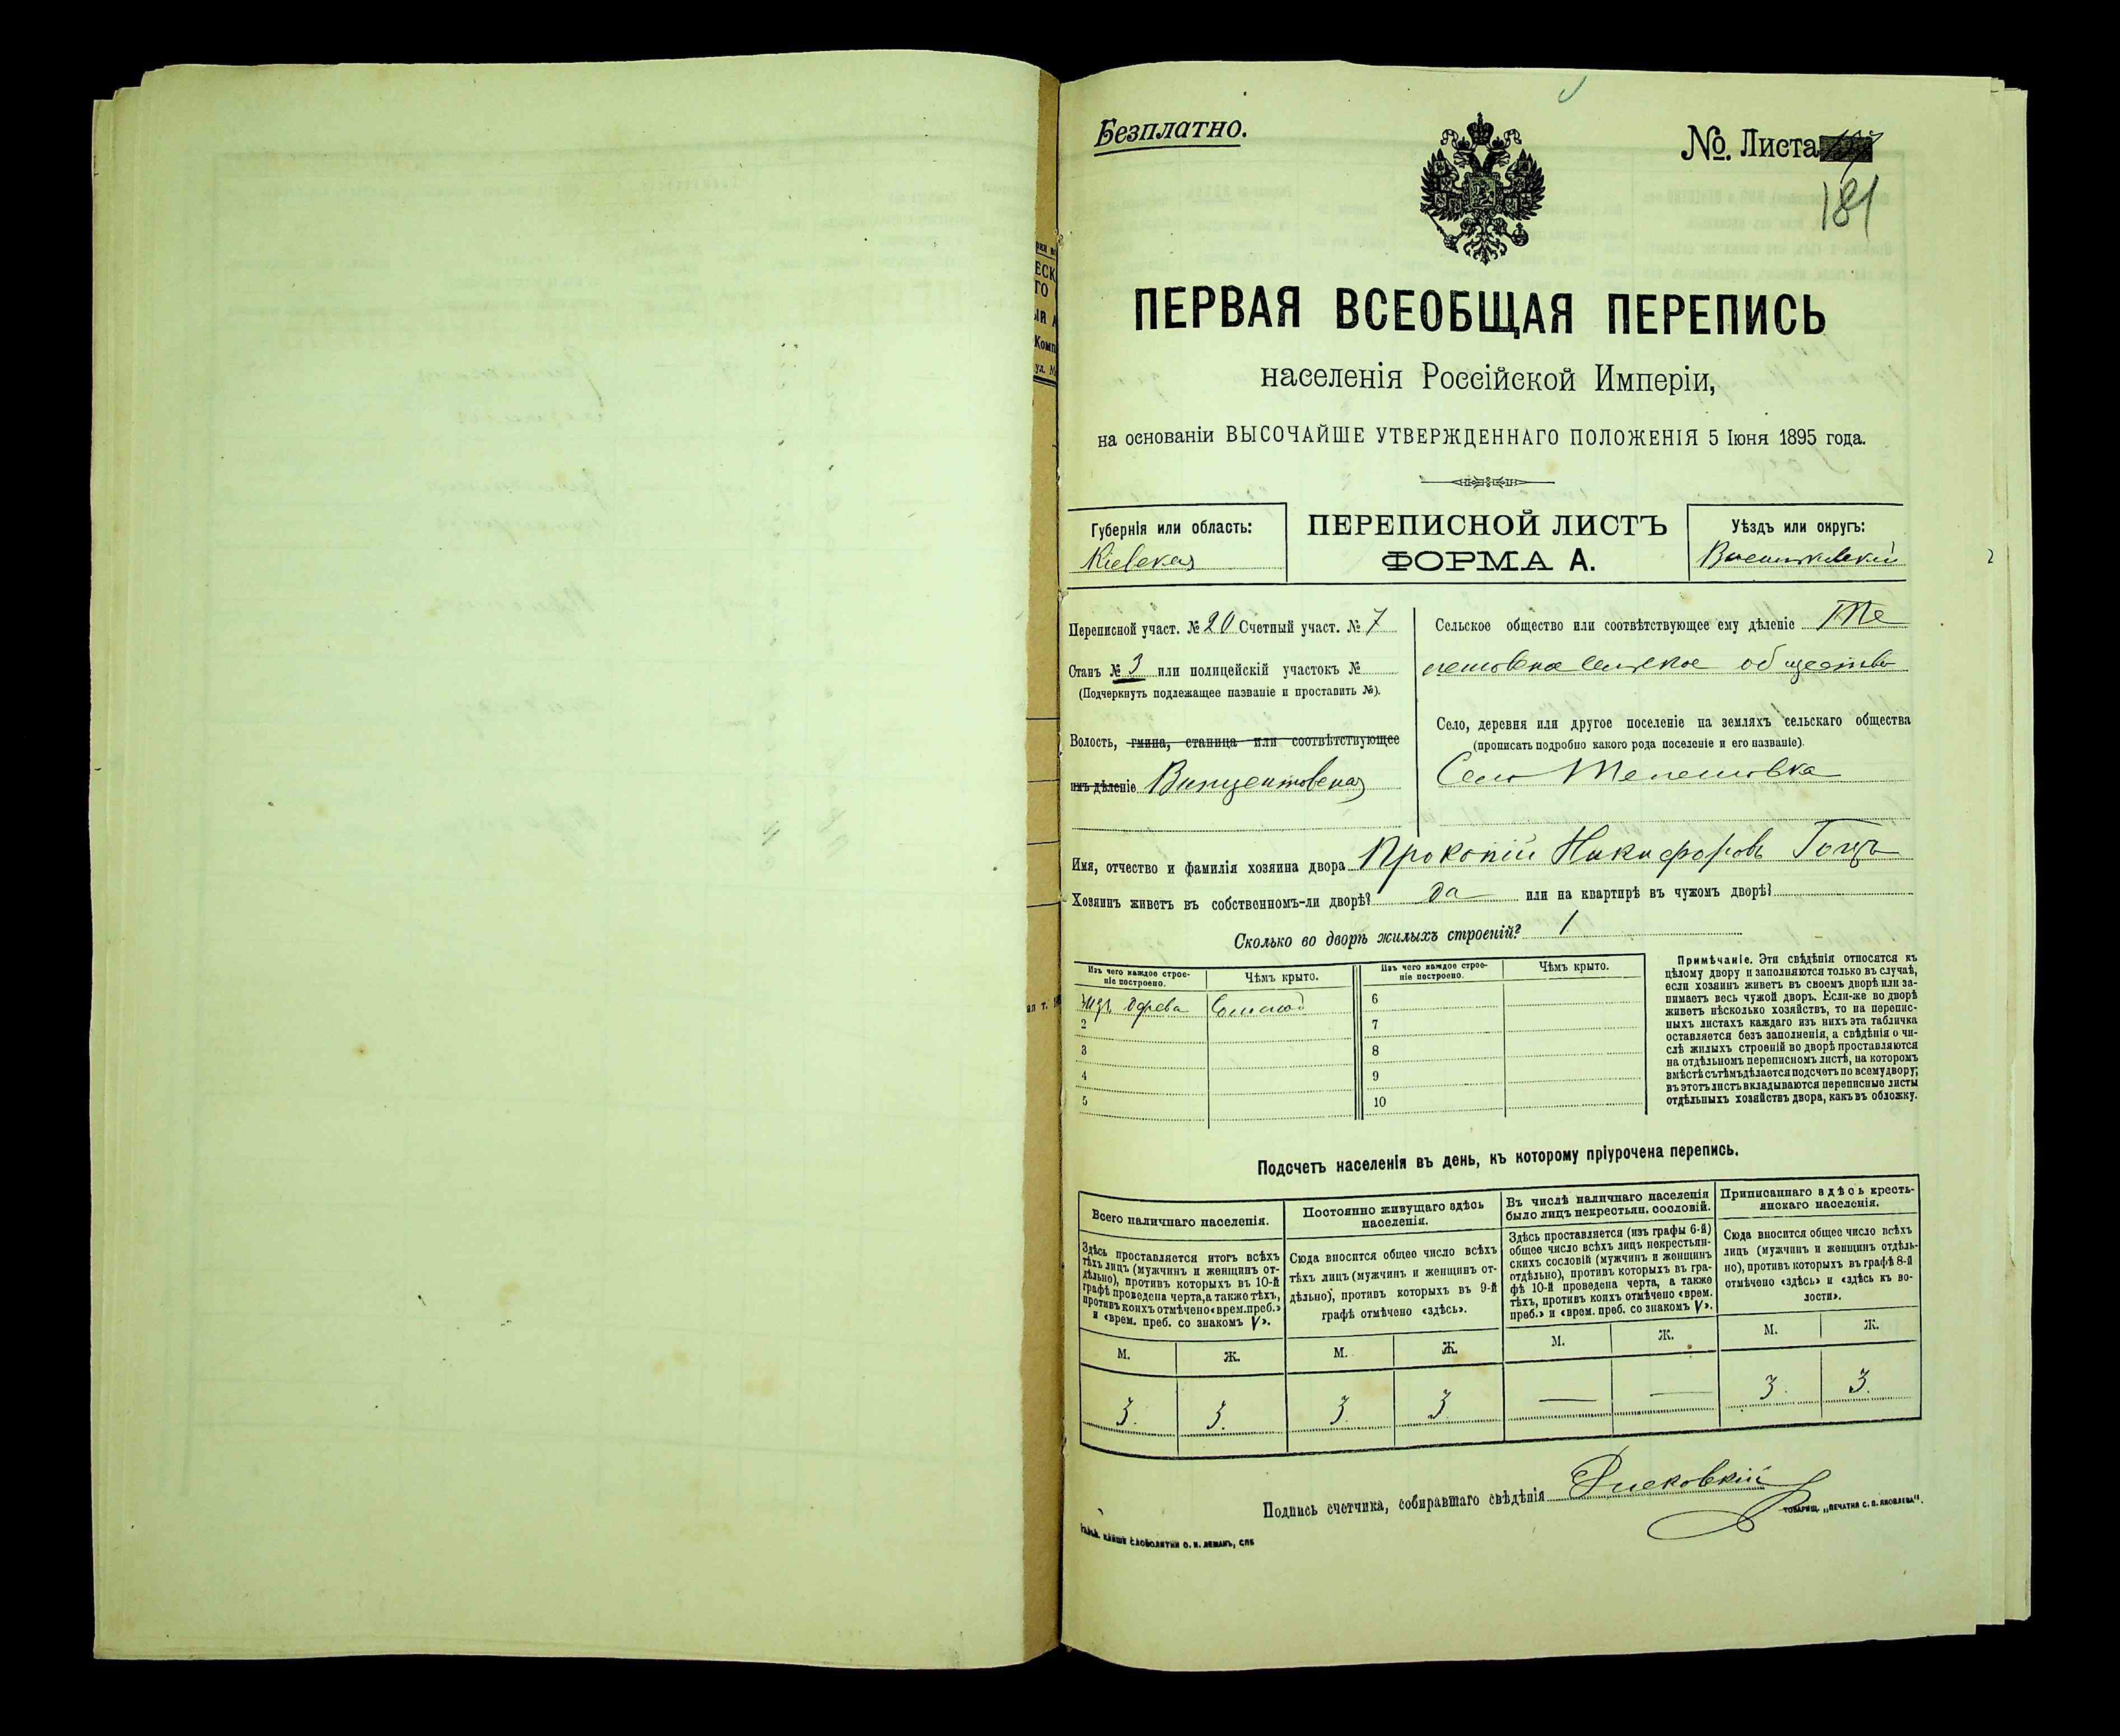 Безплатно.
№. Листа
181
ПЕРВАЯ ВСЕОБЩАЯ ПЕРЕПИСЬ
населенія Россійской Имперіи,
на основаніи ВЫСОЧАЙШЕ УТВЕРЖДЕННАГО ПОЛОЖЕНІЯ 5 Іюня 1895 года.
Губернія или область:
Кіевская
ПЕРЕПИСНОЙ ЛИСТЪ
ФОРМА А.
Уѣздъ или округъ:
Васильковскій
Переписной участ. № 20 Счетный участ. № 7
Станъ № 3 или полицейскій участокъ №
(Подчеркнуть подлежащее названіе и проставить №).
Волость, гмина, станица или соотвѣтствующее
имъ дѣленіе Винцентовская
Сельское общество или соотвѣтствующее ему дѣленіе Те
лешовское сельское общество
Село, деревня или другое поселеніе на земляхъ сельскаго общества
(прописать подробно какого рода поселеніе и его названіе).
Село Телешовка
Имя, отчество и фамилія хозяина двора Прокопій Никифоровъ Гоцъ
Хозяинъ живетъ въ собственномъ-ли дворѣ? да или на квартирѣ въ чужомъ дворѣ?
Сколько во дворѣ жилыхъ строеній? 1
Изъ чего каждое строе-
ніе построено.
Чѣмъ крыто.
Изъ чего каждое строе-
ніе построено.
Чѣмъ крыто.
1 Изъ дерева Соломой
2
3
4
5
6
7
8
9
10
Примѣчаніе. Эти свѣдѣнія относятся къ
цѣлому двору и заполняются только въ случаѣ,
если хозяинъ живетъ въ своемъ дворѣ или за-
нимаетъ весь чужой дворъ. Если-же во дворѣ
живетъ нѣсколько хозяйствъ, то на перепис-
ныхъ листахъ каждаго изъ нихъ эта табличка
оставляется безъ заполненія, а свѣдѣнія о чи-
слѣ жилыхъ строеній во дворѣ проставляются
на отдѣльномъ переписномъ листѣ, на которомъ
вмѣстѣ съ тѣмъ дѣлается подсчетъ по всему двору;
въ этотъ листъ вкладываются переписные листы
отдѣльныхъ хозяйствъ двора, какъ въ обложку.
Подсчетъ населенія въ день, къ которому пріурочена перепись.
Всего наличнаго населенія.
Здѣсь проставляется итогъ всѣхъ
тѣхъ лицъ (мужчинъ и женщинъ от-
дѣльно), противъ которыхъ въ 10-й
графѣ проведена черта, а также тѣхъ,
противъ коихъ отмѣчено «врем. преб.»
и «врем. преб. со знакомъ V».
Постоянно живущаго здѣсь
населенія.
Сюда вносится общее число всѣхъ
тѣхъ лицъ (мужчинъ и женщинъ от-
дѣльно), противъ которыхъ въ 9-й
графѣ отмѣчено «здѣсь».
Въ числѣ наличнаго населенія
было лицъ некрестьян. сословій.
Здѣсь проставляется (изъ графы 6-й)
общее число всѣхъ лицъ некрестьян-
скихъ сословій (мужчинъ и женщинъ
отдѣльно), противъ которыхъ въ гра-
фѣ 10-й проведена черта, а также
тѣхъ, противъ коихъ отмѣчено «врем.
преб.» и «врем. преб. со знакомъ V».
Приписаннаго здѣсь кресть-
янскаго населенія.
Сюда вносится общее число всѣхъ
лицъ (мужчинъ и женщинъ отдѣль-
но), противъ которыхъ въ графѣ 8-й
отмѣчено «здѣсь» и «здѣсь къ во-
лости».
М. Ж. М. Ж. М. Ж. М. Ж.
3. 3. 3. 3 — — 3. 3.
Подпись счетчика, собиравшаго свѣдѣнія
ТОВАРИЩ. „ПЕЧАТНЯ С. П. ЯКОВЛЕВА".
СЛОВОЛИТНИ О. И. ЛЕМАНЪ, СПБ